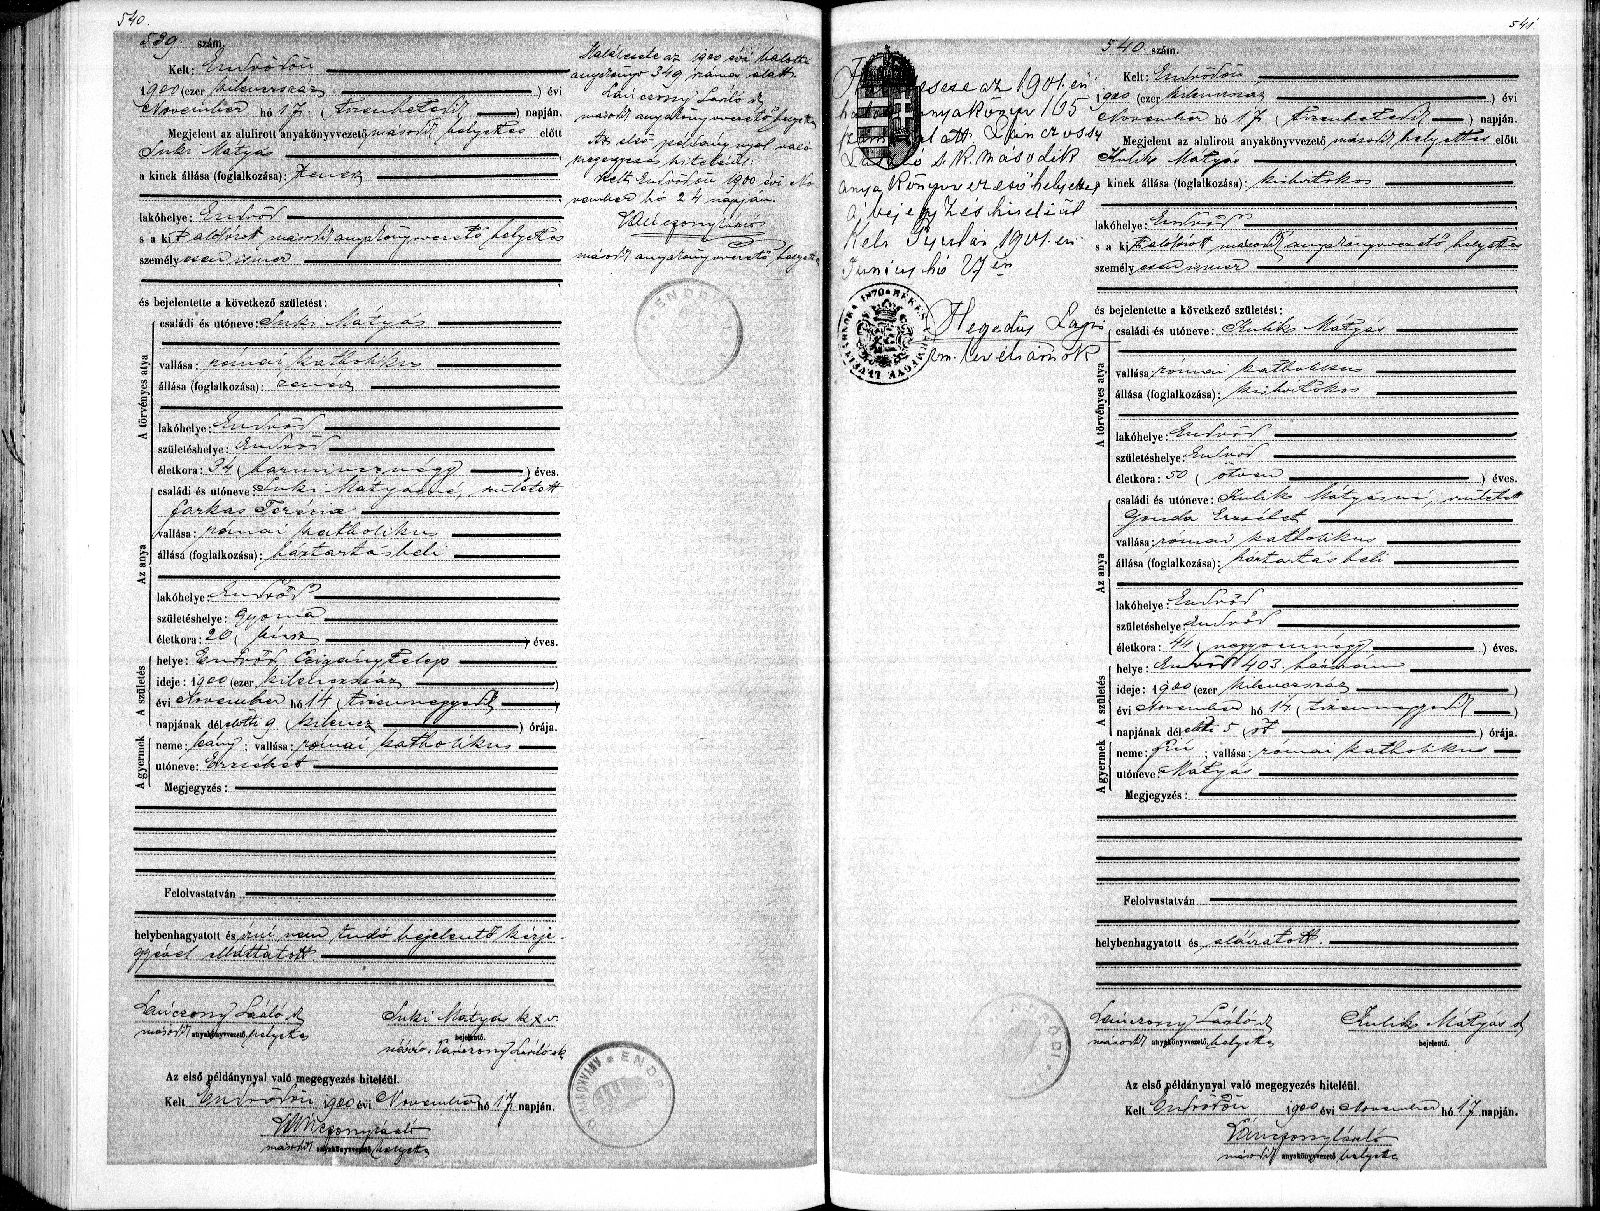 540.
539. szám.
Kelt: Endrődön
1900 (ezer kilenczszáz) évi
November hó 17. (tizenhetedik) napján.
Megjelent az alulirott anyakönyvvezető másodk helyettes előtt
Suki Mátyás
a kinek állása (foglalkozása): zenész
lakóhelye: Endrőd
s a ki alólirott másodk anyakönyvvezető helyettes
személyesen ismer
és bejelentette a következő születést:
A törvényes atya
családi és utóneve: Suki Mátyás
vallása: római katholikus
állása (foglalkozása): zenész
lakóhelye: Endrőd
születéshelye: Endrőd
életkora: 34 (harmincznégy) éves.
Az anya
családi és utóneve: Suki Mátyásné, született
Farkas Terézia
vallása: római katholikus
állása (foglalkozása): háztartásbeli
lakóhelye: Endrőd
születéshelye: Gyoma
életkora: 20 (húsz) éves.
A születés
helye: Endrőd Czigánytelep
ideje: 1900 (ezer kilenczszáz)
évi November hó 14 (tizennegyedik)
napjának délelőtti 9 (kilencz) órája.
A gyermek
neme: leány; vallása: római katholikus
utóneve: Erzsébet
Megjegyzés:
Felolvastatván
helybenhagyatott és írni nem tudó bejelentő kézje-
gyével elláttatott
Lánczony László sk Suki Mátyás k x v.
másodk anyakönyvvezető helyettes bejelentő.
névíró: Lánczony László sk
Az első példánynyal való megegyezés hiteléül.
Kelt Endrődön 1900 évi November hó 17 napján.
Lánczony László
másodk anyakönyvvezető helyettes
Halálesete az 1900 évi halotti
anyakönyv 349 száma alatt.
Lánczony László sk
másodk anyakönyvvezető helyettes
Az első példánynyal való
megegyezés hiteléül:
Kelt Endrődön 1900 évi No-
vember hó 24 napján.
Lánczony László
másodk anyakönyvvezető helyettes
541
esete az 1901. évi
anyakönyv 165
alatt Lánczony
László sk második
anyakönyvvezető helyettes
A bejegyzés hiteléül
Kelt Gyulán 1901. évi
Junius hó 27 én
Hegedűs Lajos
vm. levéltárnok
540. szám.
Kelt: Endrődön
1900 (ezer kilenczszáz) évi
November hó 17 (tizenhetedik) napján.
Megjelent az alulirott anyakönyvvezető másodk helyettes előtt
Kulik Mátyás
a kinek állása (foglalkozása): kisbirtokos
lakóhelye: Endrőd
s a ki alólirott másodk anyakönyvvezető helyettes
személyesen ismer
és bejelentette a következő születést:
A törvényes atya
családi és utóneve: Kulik Mátyás
vallása: római katholikus
állása (foglalkozása): kisbirtokos
lakóhelye: Endrőd
születéshelye: Endrőd
életkora: 50 (ötven) éves.
Az anya
családi és utóneve: Kulik Mátyásné, született
Gonda Erzsébet
vallása: római katholikus
állása (foglalkozása): háztartásbeli
lakóhelye: Endrőd
születéshelye: Endrőd
életkora: 44 (negyvennégy) éves.
A születés
helye: Endrőd 403. házszám
ideje: 1900 (ezer kilenczszáz)
évi November hó 14 (tizennegyedik)
napjának délelőtti 5 (öt) órája.
A gyermek
neme: fiú; vallása: római katholikus
utóneve: Mátyás
Megjegyzés:
Felolvastatván
helybenhagyatott és aláiratott.
Lánczony László sk Kulik Mátyás sk
másodk anyakönyvvezető helyettes bejelentő.
Az első példánynyal való megegyezés hiteléül.
Kelt Endrődön 1900 évi November hó 17 napján.
Lánczony László
másodk anyakönyvvezető helyettes